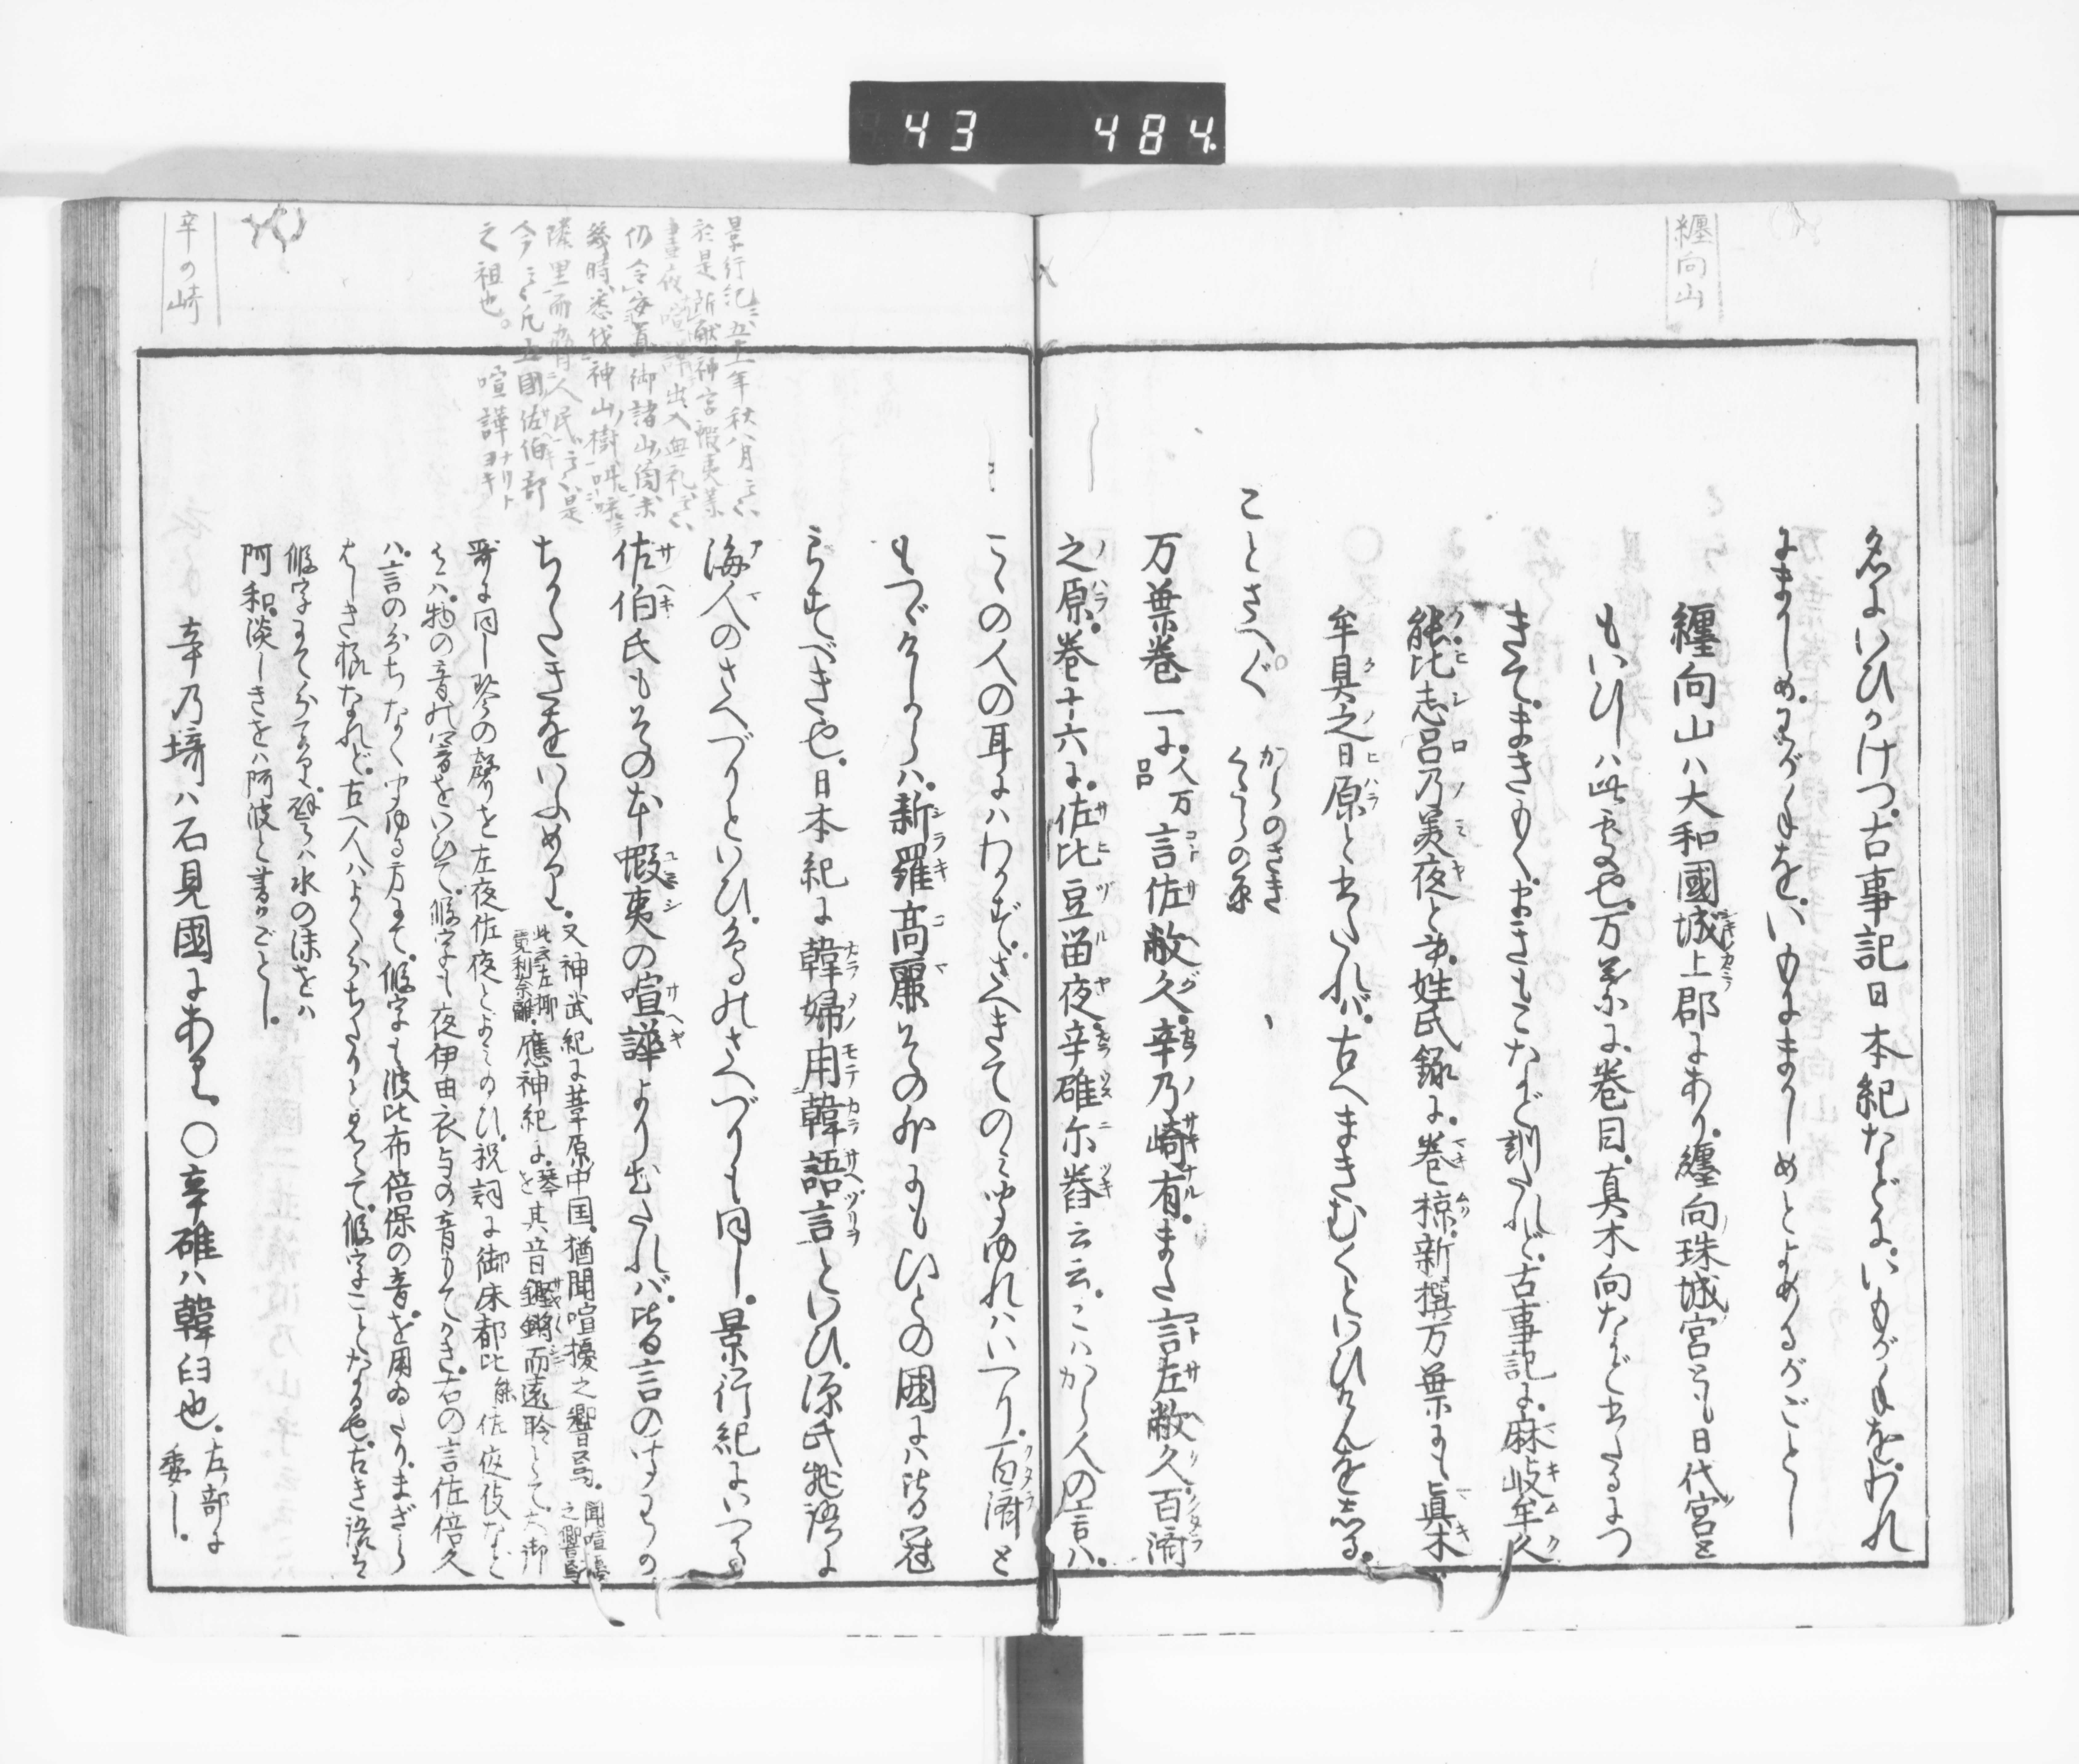 43 484
纏向山
名にいひかけつ。古事記日本紀などに、いもが手をわれ
にまかしめ。わが手をいもにまかしめとよめるがごとし
纏向山ハ大和國城上郡にあり。纏向珠城宮とも日代宮と
もいひしハ此處也。万葉に巻目。真木向など書たるにつ
きて。まきもく。まきもこなど訓たれど。古事記に。麻岐牟久
能比志呂乃美夜と歌。姓氏録に。巻椋。新撰万葉にも眞木
牟具之日原と書たれバ。古へまきむくといひけんを志る。
ことさへぐ からのさき くだらの原
万葉巻一に。人万呂 言佐敝久。辛乃崎有。また言左敝久。百済
之原。巻十六に。佐比豆留夜。辛碓尓舂云云。こハから人の言ハ。
こゝの人の耳にハわかず。さへきてのミ聞ゆれハいへり。百済と
もつゞけしからハ。新羅高麗その外にもひとの國にハ皆冠
らすべき也。日本紀に韓婦用韓語言といひ。源氏物語に
海人のさへづりといひ。鳥のさへづりも同し。景行紀にいへる
佐伯氏もその本蝦夷の喧譁より出たれバ。皆言の聞わき
ちかたきをいふめり。又神武紀に葦原中国。猶聞喧擾之響焉。聞喧擾之響焉
此云左揶霓利奈離。應神紀に。琴を其音鏗鏘而遠聆とて。大御
歌に同し琴の聲を左夜佐夜とよミ給ひ。祝詞に御床都比能佐夜伎など
有ハ。物の音乃響をいひて。假字も夜伊由衣与の音もてかき。右の言佐倍久
ハ。言の分ちなく聞ゆる方にて。假字も波比布倍保の音を用ゐたり。まぎら
ハしき様なれど。古へ人ハよく分ちたりと見えて。假字ことなる也。古き語は
假字にて分てり。譬ハ水の沫をハ
阿和。淡しきをハ阿波と書がごとし。
辛乃埼ハ石見國にあり。○辛碓ハ韓臼也。左部に委し。
景行紀ニ五十一年秋八月云々
於是所献神宮蝦夷等
晝夜喧譁出入無礼云々
仍令安置御諸山傍未
幾時悉伐神山樹叫呼
隣里而脅人民云々是
今云々凡五國佐伯部
之祖也。喧譁ナリトヨキ
辛の崎